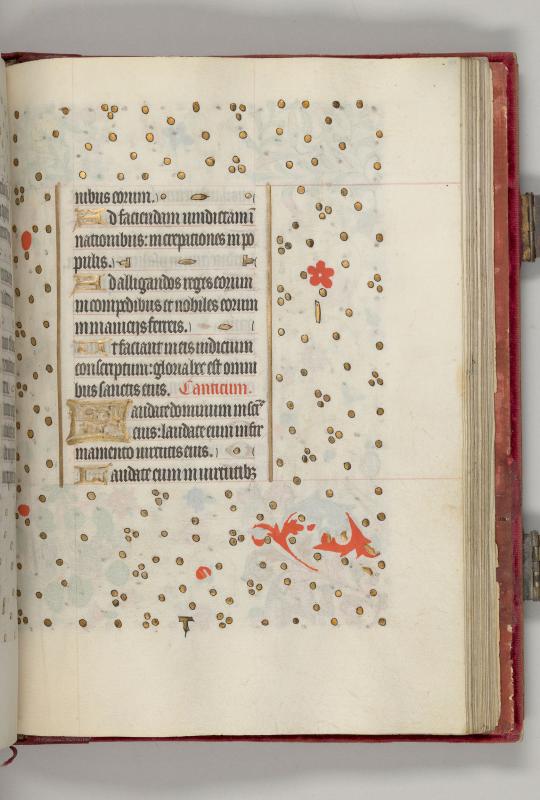 nibus eorum.
Ad faciendam uindictam ī
nationibus: increpationes in po
pulis.
Ad alligandos reges eorum
in compedibus et nobiles eorum
in manicis ferreis.
Ut faciant in eis iudicium
conscriptum: gloria hec est omni
bus sanctis eius. Canticum.
Laudate dominum in scīs
eius: laudate eum in fir
mamento uirtutis eius.
Laudate eum in uirtutibꝫ